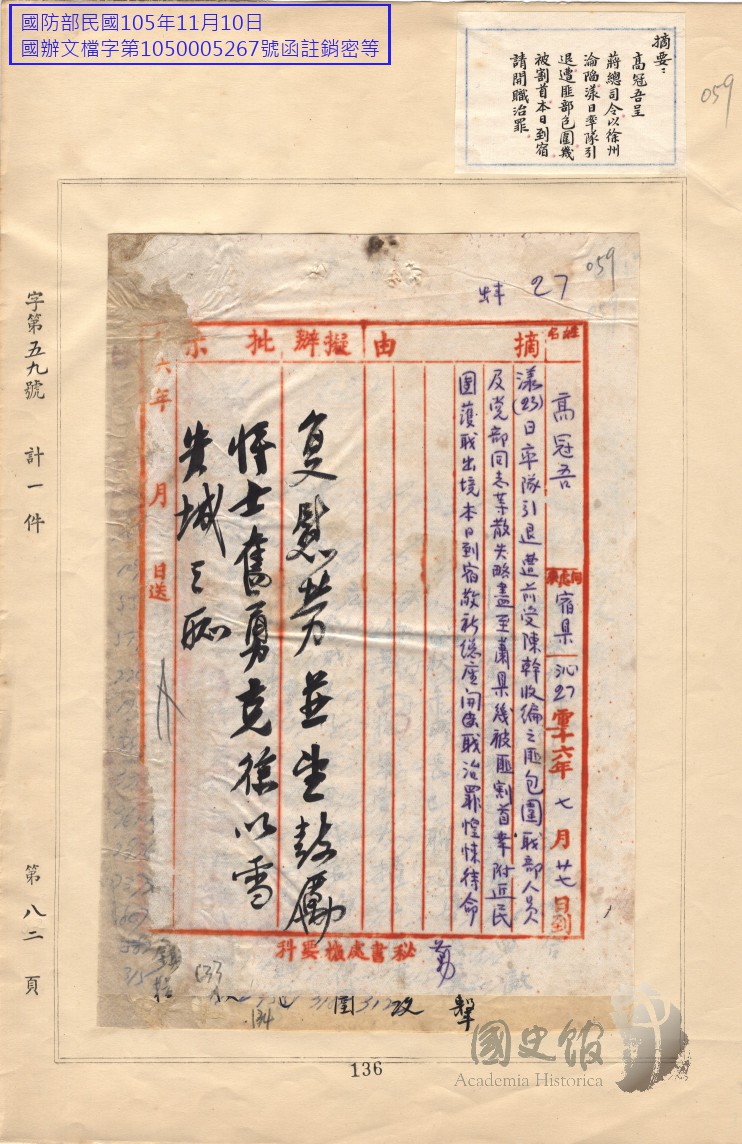 國防部民國105年11月10日
國辦文檔字第1050005267號函註銷密等
摘要：
高冠吾呈
蔣總司令以徐州
淪陷漾日率隊引
退遭匪部包圍幾
被割首本日到宿
請開職治罪
059
059
蚌 27
姓名
摘
由
擬辦
批
示
高冠吾
宿县 沁27
電十六年 七月廿七日到
漾(23)日率隊引退遭前受陳幹收編之匪包圍職部人員
及党部同志等散失略盡至蕭县幾被匪割首幸附近民
團護戝出境本日到宿敬祈總座開去戝治罪惶悚待命
复慰勞並望鼓勵
将士奮勇克徐以雪
失城之恥
六年 月 日送
秘書處機要科
字第五九號 計一件
第八二頁
136
國史館
Academia Historica